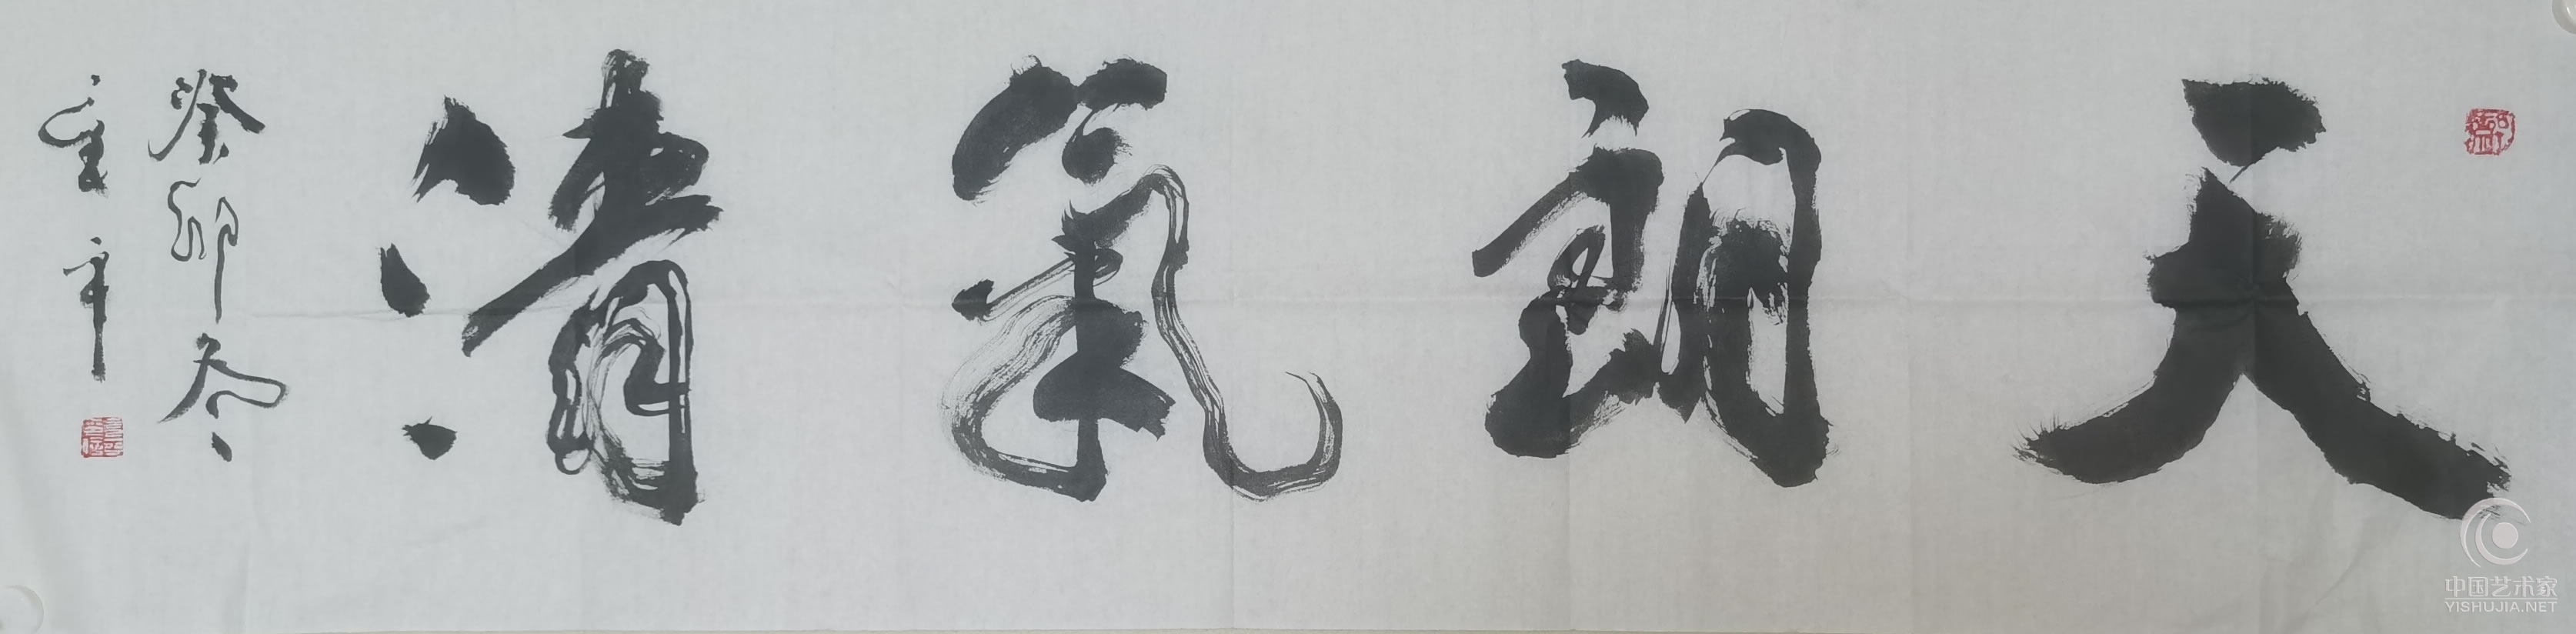 天朗氣清
癸卯冬
童辛
中国艺术家
YISHUJIA.NET